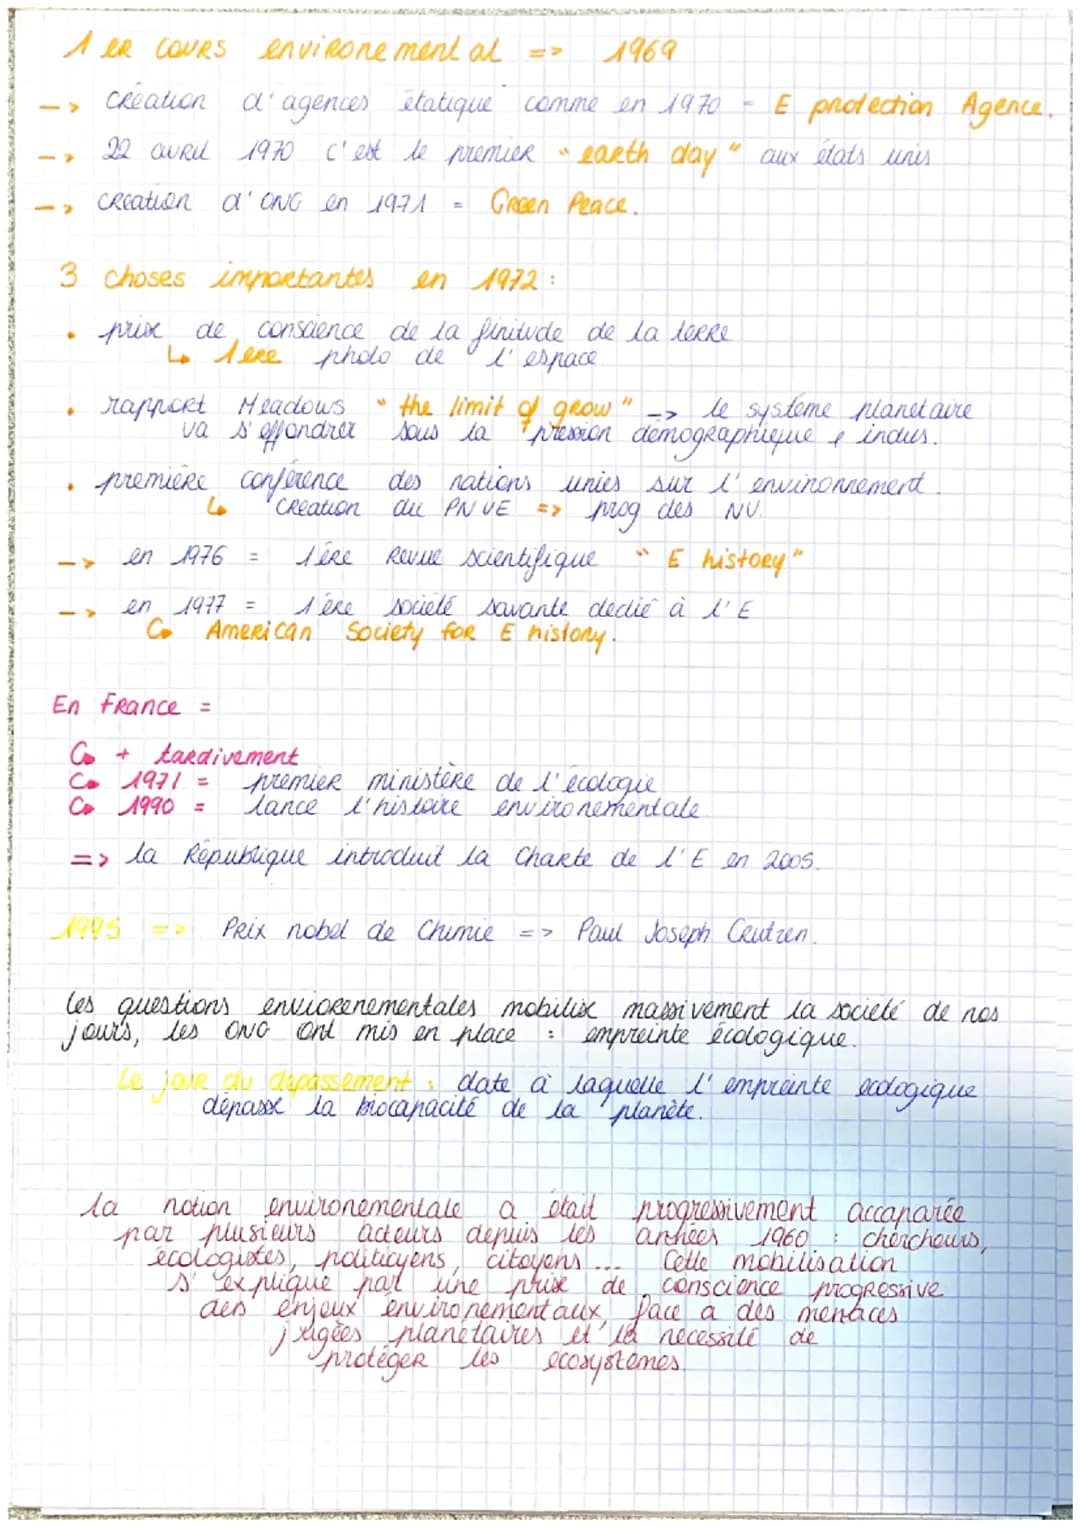 1er cours environemental => 1969
-> création d'agences étatique comme en 1970 = E protection Agence.
-> 22 avril 1970 c'est le premier "earth day" aux états unis
-> creation d'ONG en 1971 = Green Peace.
3 choses importantes en 1972 :
• prise de conscience de la finitude de la terre
↳ 1ere photo de l'espace
• rapport Meadows "the limit of grow" -> le système planétaire
va s'effondrer sous la pression démographique & indus.
• première conférence des nations unies sur l'environnement.
↳ création du PNUE => prog des NU.
-> en 1976 = 1ère revue scientifique "E history"
-> en 1977 = 1ère société savante dedié à l'E
↳ American Society for E history.
En France =
↳ + tardivement
↳ 1971 = premier ministère de l'écologie
↳ 1990 = lance l'histoire environementale
=> la République introduit la Charte de l'E en 2005.
1995 => Prix nobel de Chimie => Paul Joseph Crutzen.
les questions enviorenementales mobilise massivement la societé de nos
jours, les ONG ont mis en place : empreinte écologique.
Le jour du dépassement : date à laquelle l'empreinte ecologique
dépasse la biocapacité de la planète.
la notion environementale a était progressivement accaparée
par plusieurs acteurs depuis les années 1960 : chercheurs,
écologistes, politicyens, citoyens... Cette mobilisation
s'explique par une prise de conscience progressive
des enjeux environementaux, face a des menaces
jugées planétaires et la necessité de
protéger les écosystèmes